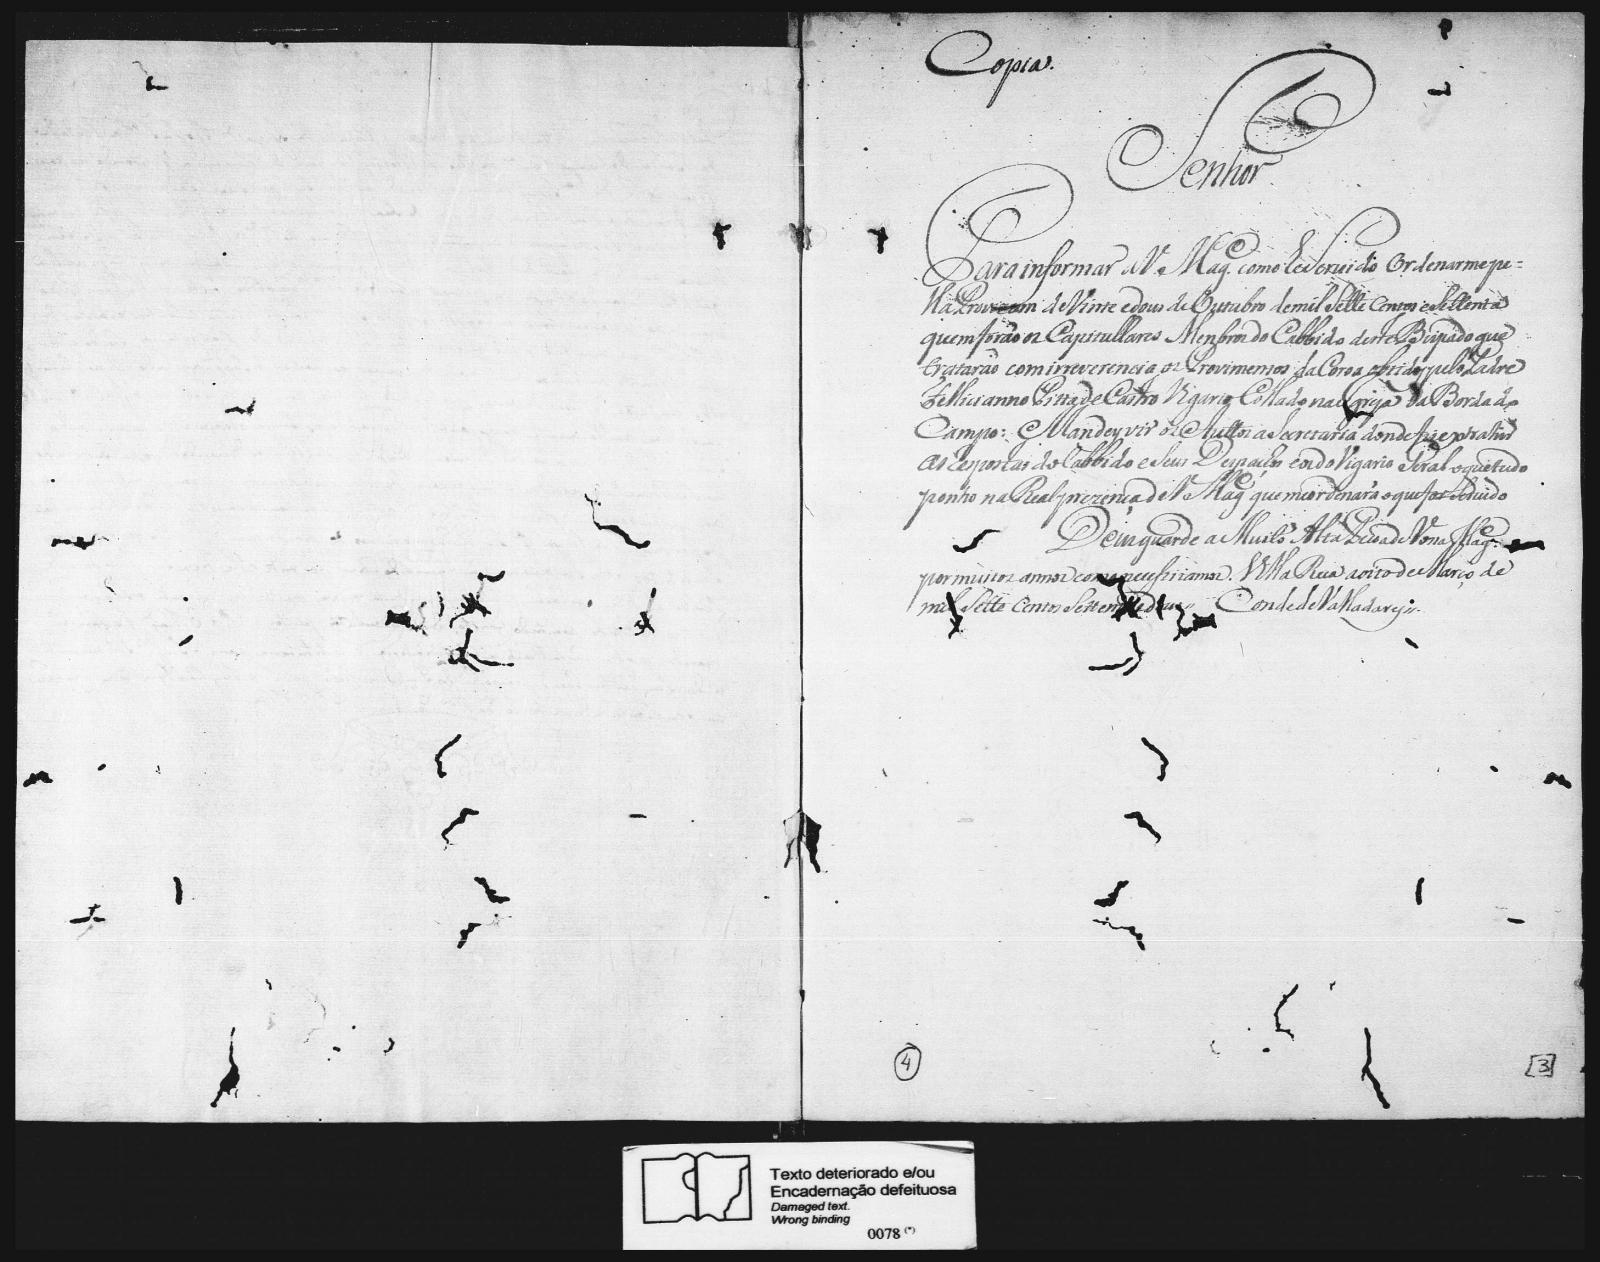 Copia.
Senhor
Para informar a V. Mag.e como he Servido Ordenarme pe=
lla Provizam de Vinte e dous de Outubro de mil Sette Centos e Settenta
quem forão os Capitullares Menbros do Cabbido deste Bispado que
tratarão com irreverencia os Provimentos da Coroa obtidos pelo Padre
Felliciano Pitta de Castro Vigario Collado na Igreja da Borda do
Campo: Mandey vir os Auttos a Secretaria donde fiz extrahir
as respostas do Cabbido e Seus Despachos e os do Vigario Geral o que tudo
ponho na Real prezença de V. Mag.e que me ordenará o que for Servido
Deos guarde a Muito Alta Pessoa de Vossa Mag.e
por muitos annos como necessitamos. Villa Rica a oito de Março de
mil Sette Centos Settenta e dous Conde de Valladares.
4
[3]
Texto deteriorado e/ou
Encadernação defeituosa
Damaged text.
Wrong binding
0078 (*)